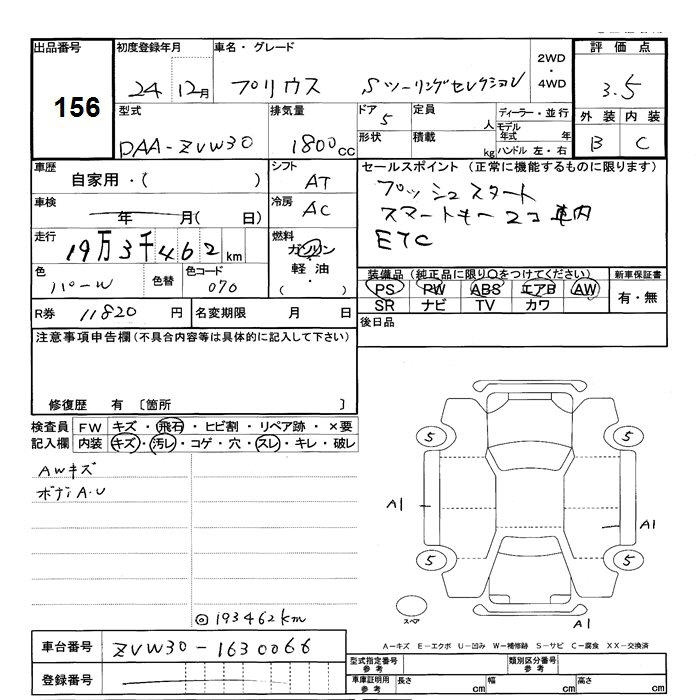 出品番号 初度登録年月 車名・グレード 2WD・4WD 評価点
156 24 12月 プリウス Sツーリングセレクション 3.5
型式 排気量 ドア 定員 人 ディーラー・並行 外装 内装
DAA-ZVW30 1800cc 5 形状 積載 kg モデル年式 年 ハンドル 左・右 B C
車歴 自家用・( ) シフト AT セールスポイント (正常に機能するものに限ります)
車検 年 月( 日) 冷房 AC プッシュスタート
スマートキー2コ車内
走行 19万3千462km 燃料 ガソリン・軽油・( ) ETC
色 パール 色替 色コード 070 装備品 (純正品に限り○をつけてください) 新車保証書
PS PW ABS エアB AW 有・無
SR ナビ TV カワ
R券 11820 円 名変期限 月 日 後日品
注意事項申告欄 (不具合内容等は具体的に記入して下さい)
修復歴 有 〔箇所 〕
検査員記入欄 FW キズ・飛石・ヒビ割・リペア跡・×要
内装 キズ・汚レ・コゲ・穴・スレ・キレ・破レ
AWキズ
ボディA・U
5 5
A1 A1
5 5
スペア A1
◎193462km
A−キズ E−エクボ U−凹み W−補修跡 S−サビ C−腐食 XX−交換済
車台番号 ZVW30-1630066 型式指定番号 参考 類別区分番号 参考
登録番号 車庫証明用 参考 長さ cm 幅 cm 高さ cm